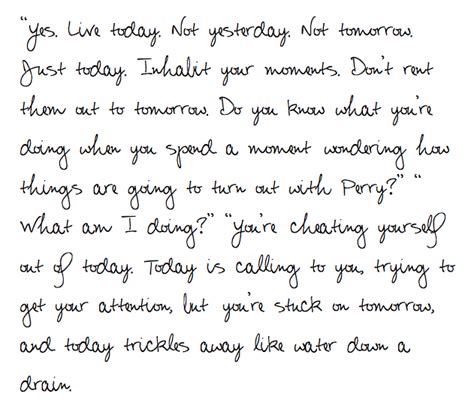 "Yes. Live today. Not yesterday. Not tomorrow.
Just today. Inhabit your moments. Don't rent
them out to tomorrow. Do you know what you're
doing when you spend a moment wondering how
things are going to turn out with Perry?" "
What am I doing?" "You're cheating yourself
out of today. Today is calling to you, trying to
get your attention, but you're stuck on tomorrow,
and today trickles away like water down a
drain.